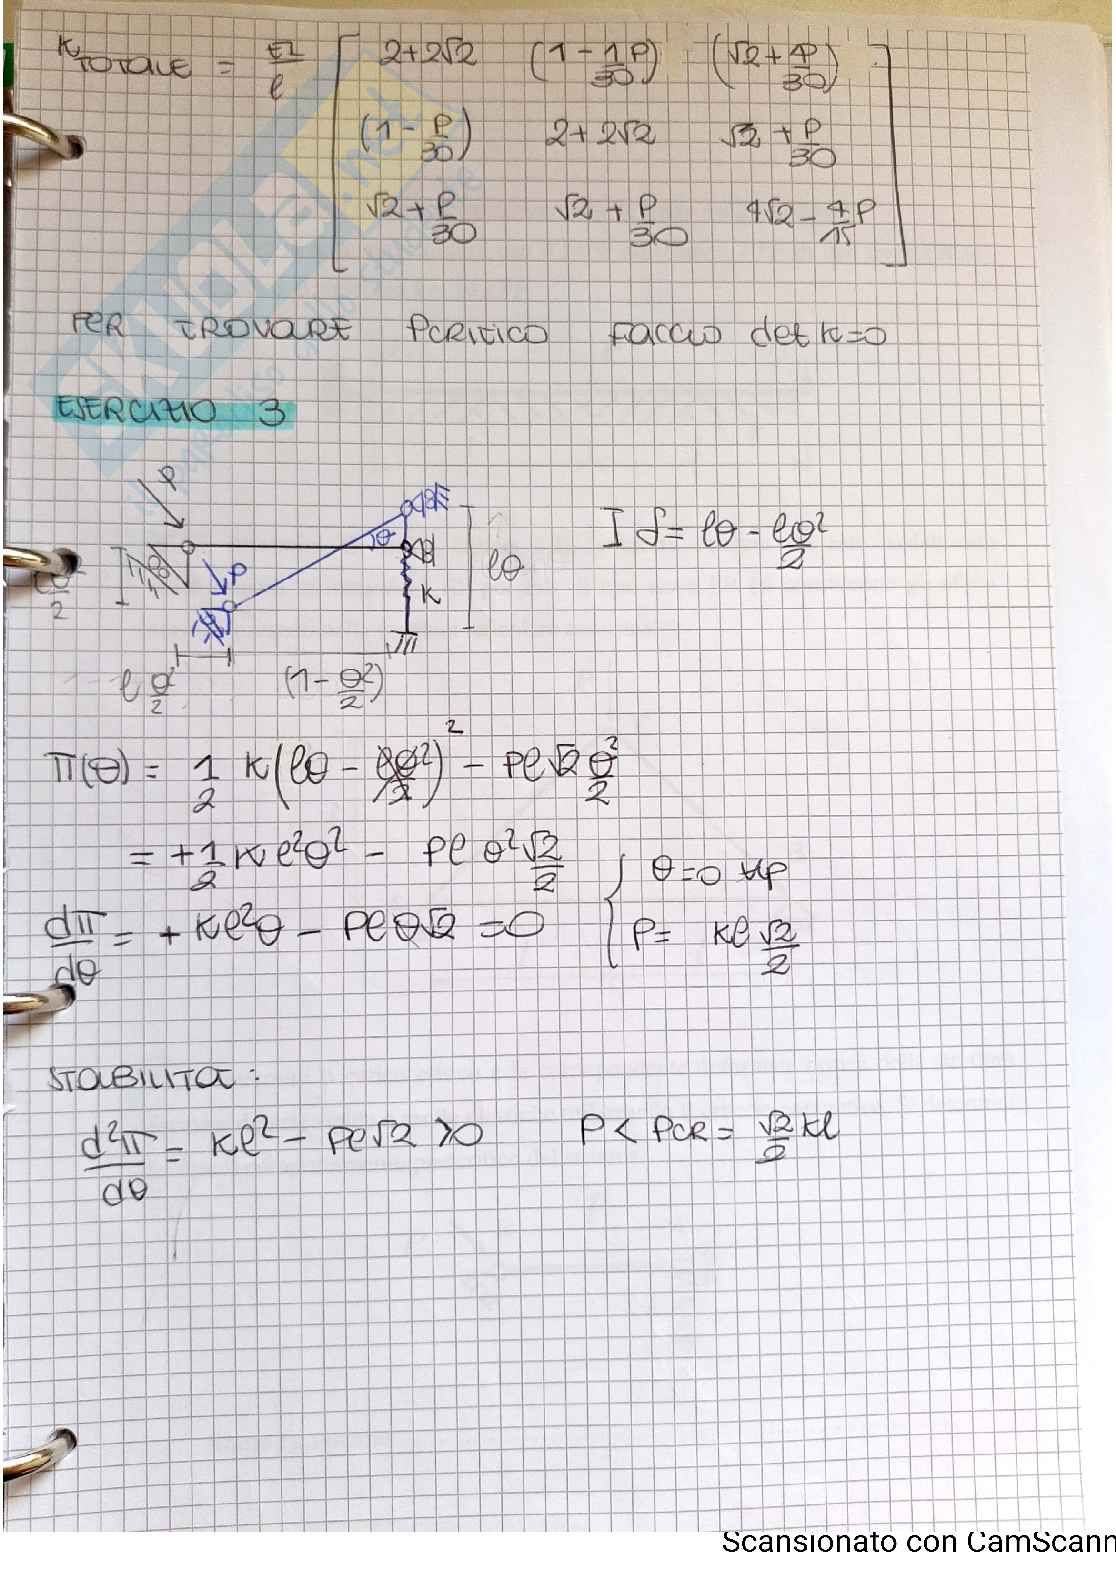 K TOTALE = EI/l [ 2+2√2 (1 - 1P/30) (√2 + 1P/30)
(1 - P/30) 2+2√2 √2 + P/30
√2 + P/30 √2 + P/30 4√2 - 4P/15 ]
PER TROVARE PCRITICO FACCIO det K=0
ESERCIZIO 3
P
θ
I δ = lθ - lθ²/2
P
lθ
K
2
l θ²/2 (1 - θ²/2)
π(θ) = 1/2 K(lθ - lθ²/2)² - Pl√2 θ²/2
= +1/2 Kl²θ² - Pl θ² √2/2
θ=0 ∀P
dπ/dθ = + Kl²θ - Plθ√2 = 0
P = Kl √2/2
STABILITA:
d²π/dθ = Kl² - Pl√2 >0 P < PCR = √2/2 Kl
SKUOLA.net
Scansionato con CamScann